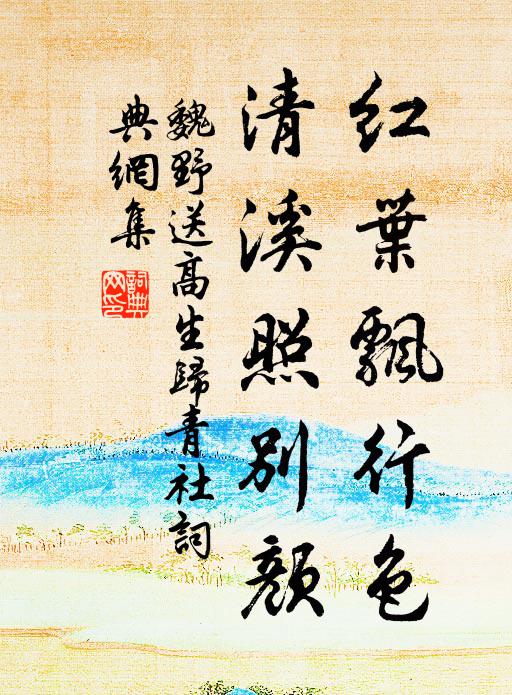 紅葉飄行色
清溪照別顏
魏野送高生歸青社詞
典網集
詞典網印